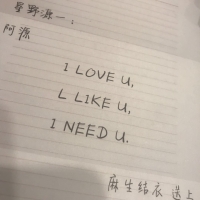 星野源一:
阿源
I LOVE U,
L LIKE U,
I NEED U.
麻生结衣 送上